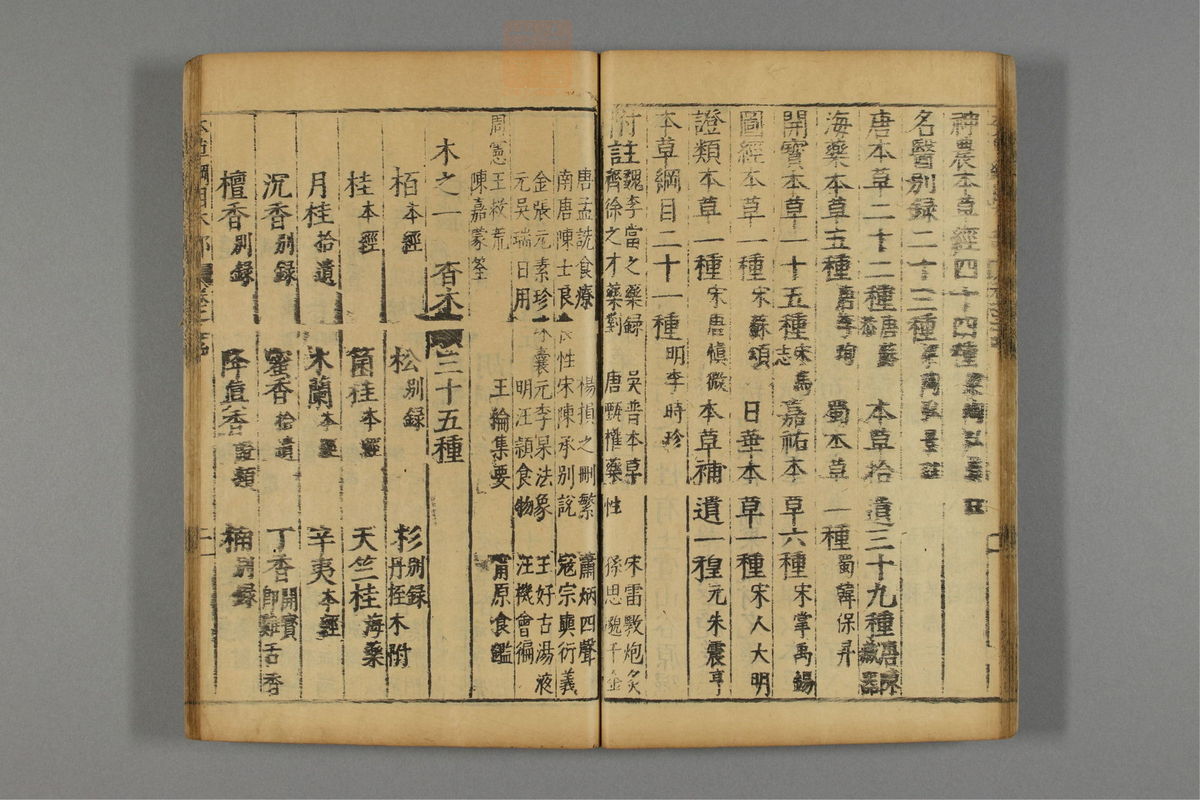 神農本草經四十四種 梁陶弘景註
名醫別録二十三種 梁陶弘景註
唐本草二十二種 唐蘇恭 本草拾遺三十九種 唐陳藏器
海藥本草五種 唐李珣 蜀本草一種 蜀韓保昇
開寶本草一十五種 宋馬志 嘉祐本草六種 宋掌禹錫
圖經本草一種 宋蘇頌 日華本草一種 宋人大明
證類本草一種 宋唐慎微 本草補遺一種 元朱震亨
本草綱目二十一種 明李時珍
附註 魏李當之藥録 吳普本草 宋雷斅炮炙
齊徐之才藥對 唐甄權藥性 孫思邈千金
唐孟詵食療 楊損之刪繁 蕭炳四聲
南唐陳士良食性 宋陳承別說 寇宗奭衍義
金張元素珍珠囊 元李杲法象 王好古湯液
元吳瑞日用 明汪穎食物 汪機會編
周憲王救荒 王綸集要 甯原食鑑
陳嘉謨筌
木之一 香木三十五種
栢本經 松別録 杉別録 丹桎木附
桂本經 箘桂本經 天竺桂海藥
月桂拾遺 木蘭本經 辛夷本經
沉香別録 蜜香拾遺 丁香開寶 即雞舌香
檀香別録 降眞香證類 楠別録